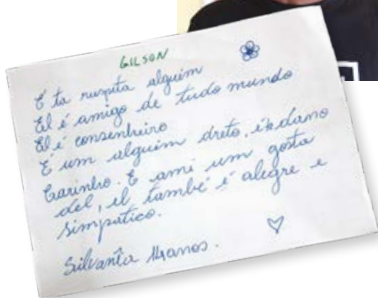 GILSON
É ta ruspita alguém
El é amigo de tudo mundo
El é consenheiro
É um alguém dreto, é ta dano
Carinho. E ami um gosta
del, el também é alegre e
simpatico.
Silvanîa